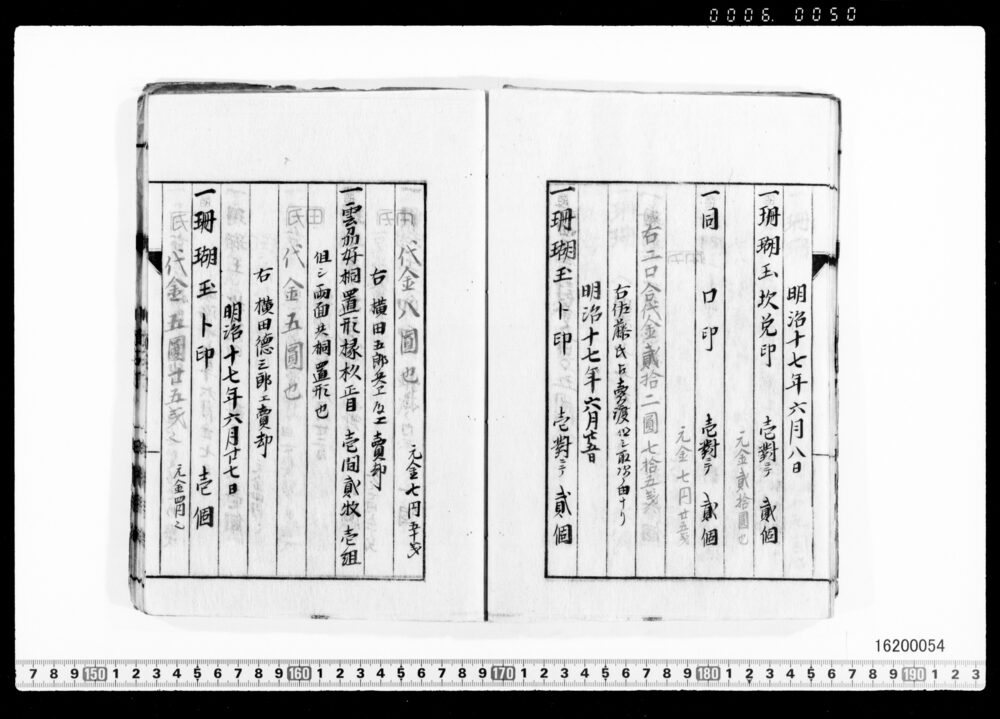 0006. 0050
明治十七年六月八日
一珊瑚玉坎兌印 壱對ニテ 貳個
元金貳拾圓也
一同 口印 壱對ニテ 貳個
元金七円廿五戔
右二口合代金貳拾二圓七拾五戔
右佐藤氏ゟ賣渡
明治十七年六月廿五日
一珊瑚玉ト印 壱對ニテ 貳個
代金八圓也 元金七円五十戔
右 横田五郎兵エ 賣却
一雲刕好桐置形椽杉正目 壱間貳牧 壱組
但シ両面共桐置形也
代金五圓也
右 横田德三郎エ賣却
明治十七年六月廿七日
一珊瑚玉ト印 壱個
代金五圓廿五戔
16200054
7 8 9 150 1 2 3 4 5 6 7 8 9 160 1 2 3 4 5 6 7 8 9 170 1 2 3 4 5 6 7 8 9 180 1 2 3 4 5 6 7 8 9 190 1 2 3